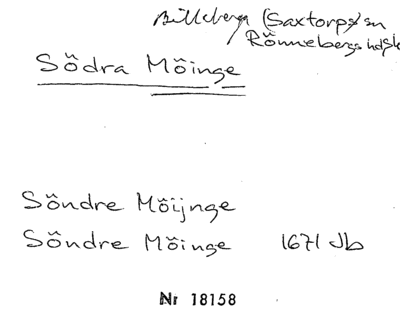 Billeberga (Saxtorps sn
Rönnebergs hd Sk
Södra Möinge
Söndre Möijnge
Söndre Möinge 1671 Jb
Nr 18158